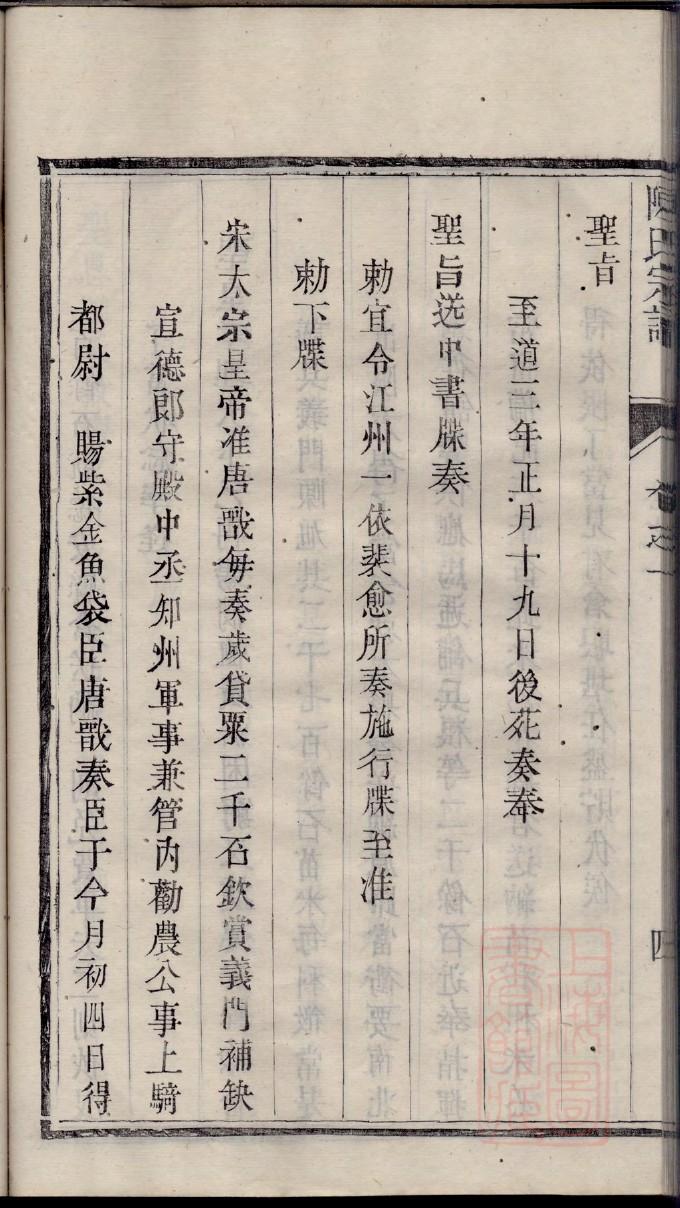 陳氏宗譜 卷之一 四
聖旨
至道三年正月十九日後苑奏奉
聖旨送中書牒奏
勅宜令江州一依裴愈所奏施行牒至准
勅下牒
宋太宗皇帝准唐戬每奏歲貸粟二千石欽賞義門補缺
宣德郎守殿中丞知州軍事兼管內勸農公事上騎
都尉 賜紫金魚袋臣唐戬奏臣于今月初四日得